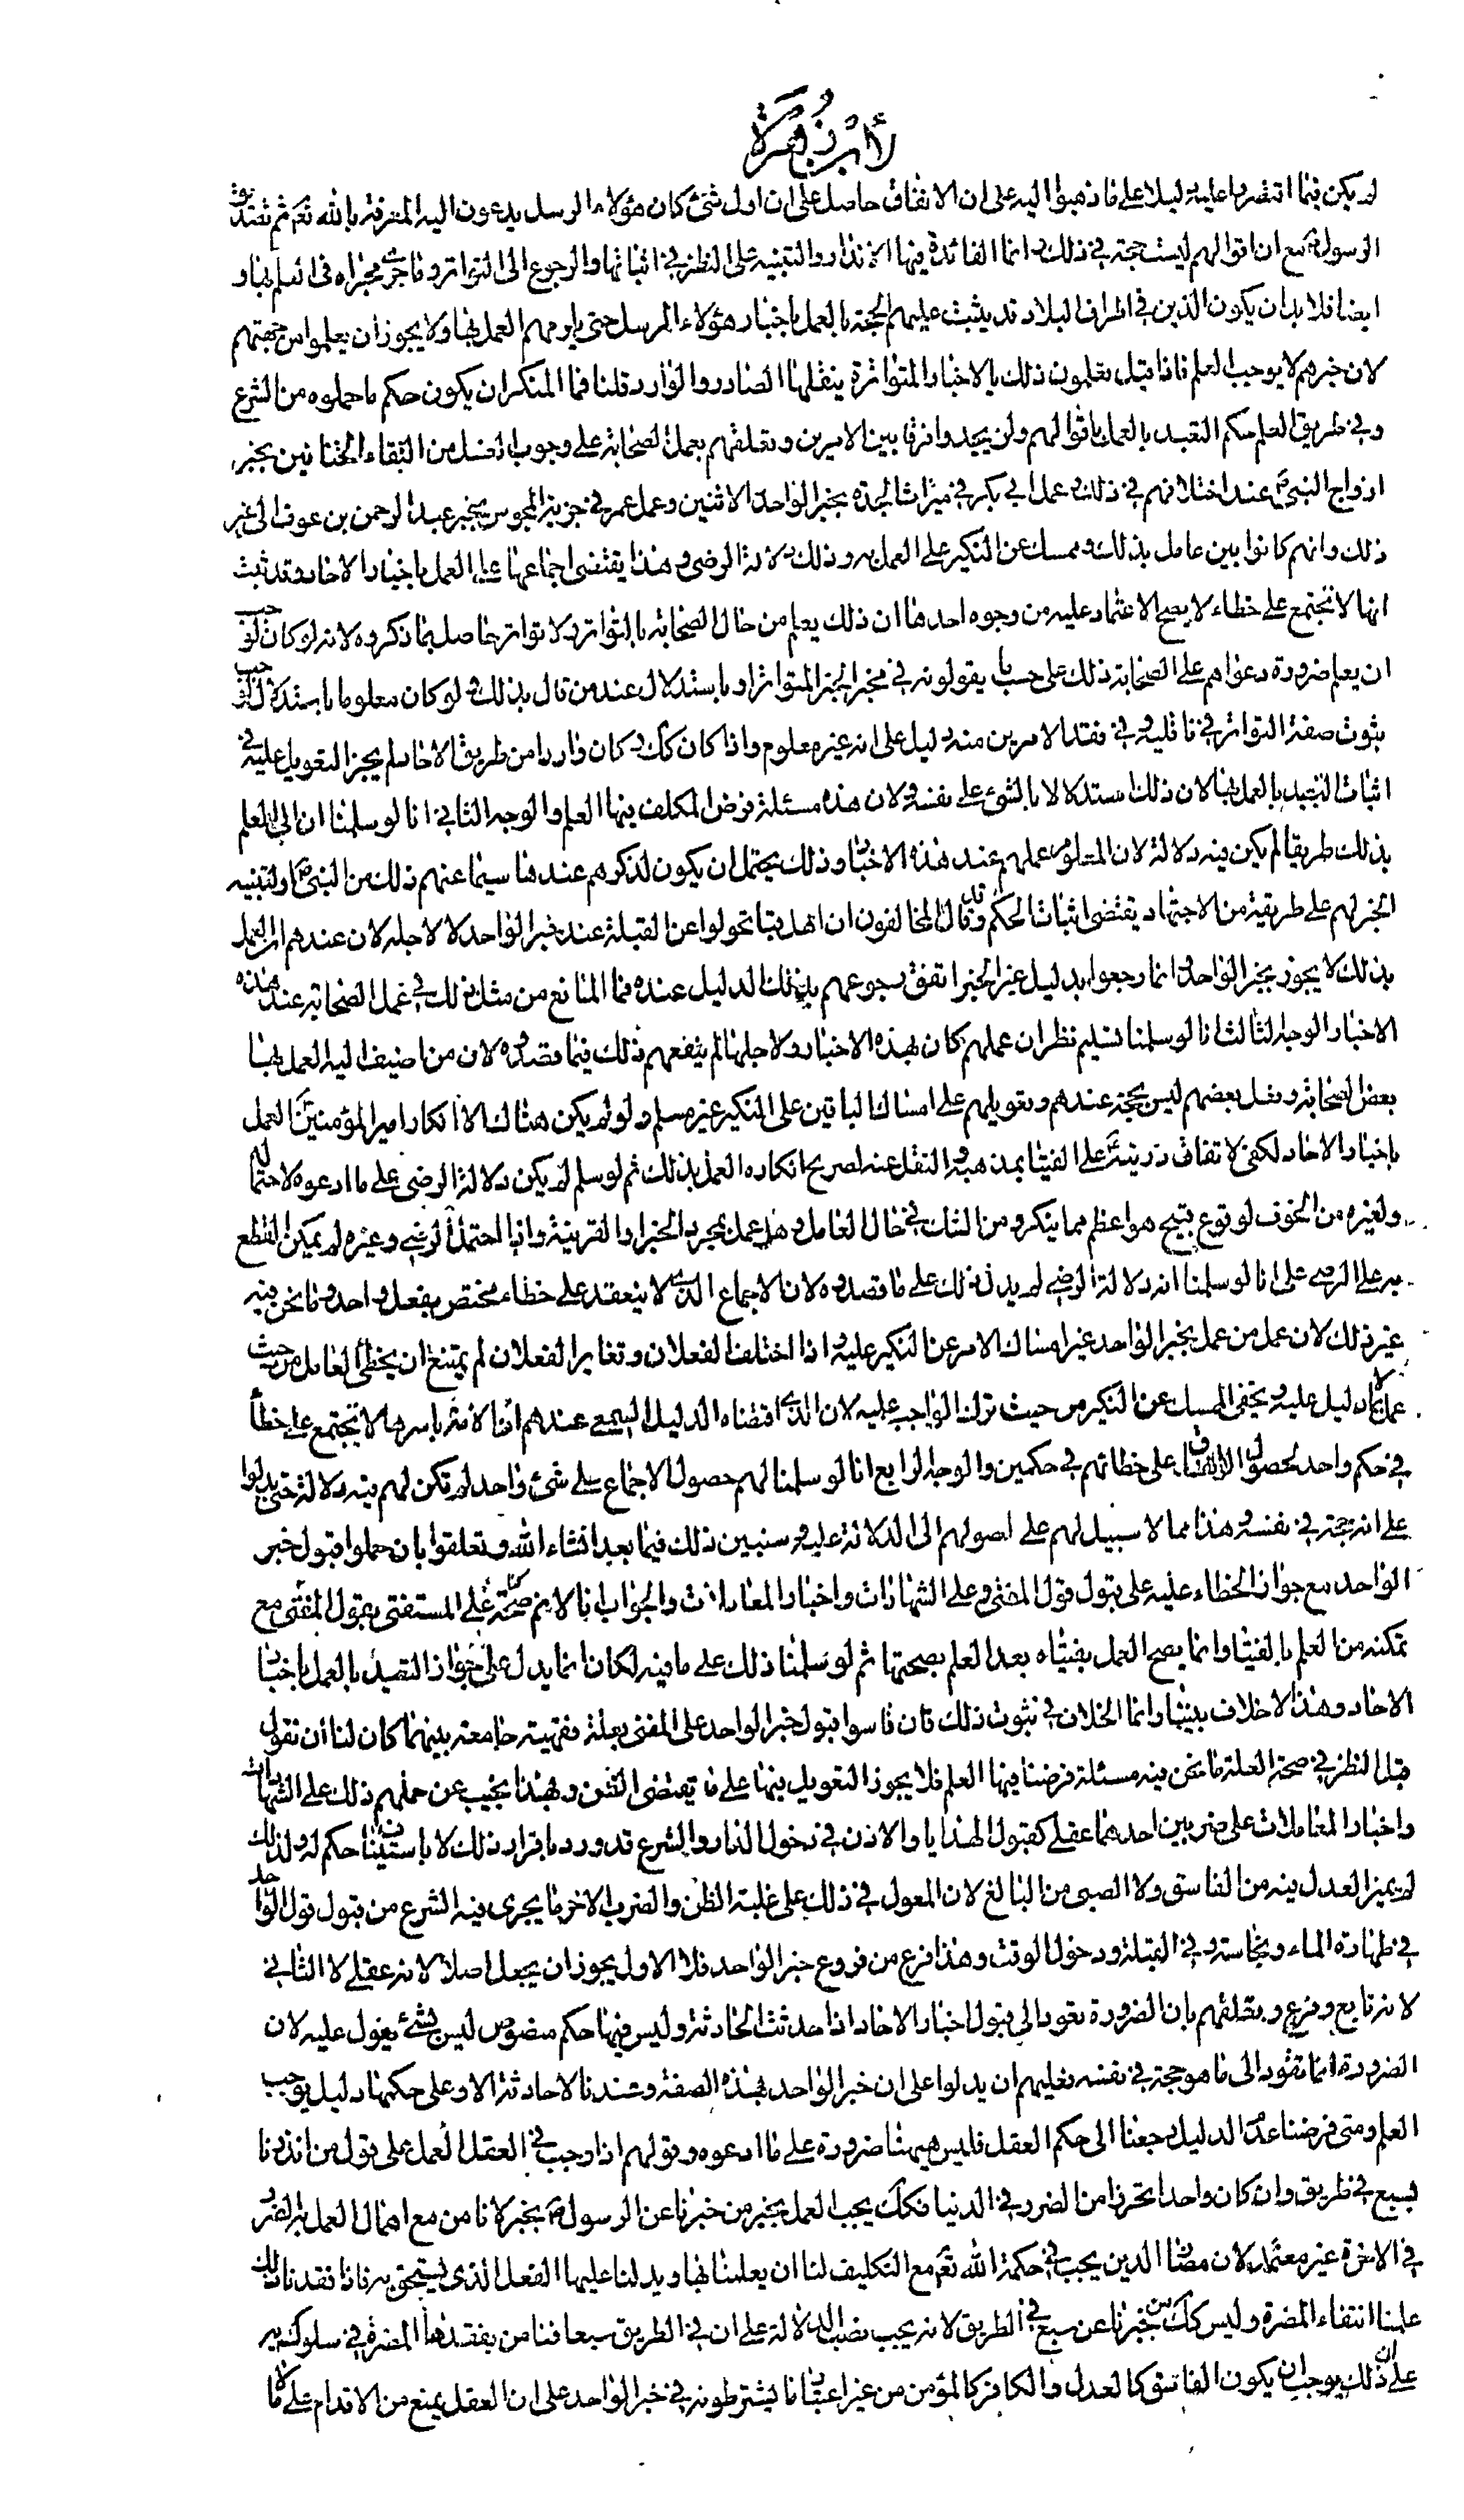 لم يكن فيما اقتصروا عليه دليلا على ما ذهبوا اليه على ان الاتفاق حاصل على ان اول شئ كان هؤلاء الرسل يدعون اليه المعرفة بالله تع ثم تصديق
الرسول ص مع ان اقوالهم ليست حجة في ذلك و انما الفائدة فيها الانذار و التنبيه على النظر في اثباتها و الرجوع الى التواتر و ما جرى مجراه فى العلم بها و
ايضا فلا بد ان يكون الذين فى اطراف البلاد قد يثبت عليهم الحجة بالعمل باخبار هؤلاء المرسل حتى يلزمهم العمل بها و لا يجوز ان يعلموا من جهتهم
لان خبرهم لا يوجب العلم فاذا قيل يعلمون ذلك بالاخبار المتواترة ينقلها الصادر و الوارد قلنا فما المنكر ان يكون حكم ما حملوه من الشرع
و في طريق العلم حكم التعبد بالعمل باقوالهم و لن يجدوا فرقا بين الامرين و تعلقهم بعمل الصحابة على وجوب الغسل من التقاء الختانين بخبر
ازواج النبي ص عند اختلافهم في ذلك و عمل ابي بكر في ميراث الجدة بخبر الواحد الاثنين و عمل عمر في جزية المجوس بخبر عبد الرحمن بن عوف الى غير
ذلك و انهم كانوا بين عامل بذلك و ممسك عن النكير على العمل به و ذلك دلالة الرضى و هذا يقتضى اجماعها على العمل باخبار الاحاد و قد ثبت
انها لا تجتمع على خطاء لا يصح الاعتماد عليه من وجوه احدها ان ذلك يعلم من حال الصحابة بالتواتر و لا تواتر حاصل بما ذكروه لانه لو كان لوجب
ان يعلم ضرورة دعواهم على الصحابة ذلك على حسب ما يقولونه في مخبر الخبر المتواتر او باستدلال عند من قال بذلك و لو كان معلوما باستدلال لوجب
ثبوت صفة التواتر في ناقليه و في فقد الامرين منه دليل على انه غير معلوم و اذا كان كك و كان واردا من طريق الاحاد لم يجز التعويل عليه في
اثبات التعبد بالعمل بها لان ذلك استدلالا بالشئ على نفسه و لان هذه مسئلة فرض المكلف فيها العلم و الوجه الثاني انا لو سلمنا ان الى العلم
بذلك طريقا لم يكن فيه دلالة لان المعلوم عملهم عند هذه الاخبار و ذلك يحتمل ان يكون لذكرهم عندها سيما عنهم ذلك من النبي ص او لتنبيه
الخبر لهم على طريقة من الاجتهاد يقتضى اثبات الحكم و قد قال المخالفون ان اهل قبا تحولوا عن القبلة عند خبر الواحد لا لاجله لان عندهم ان العمل
بذلك لا يجوز بخبر الواحد و انما رجعوا بدليل غير الخبر اتفق رجوعهم بذلك الدليل عنده فما المانع من مثل ذلك في عمل الصحابة عند هذه
الاخبار الوجه الثالث انا لو سلمنا تسليم نظر ان عملهم كان بهذه الاخبار و لاجلها لم ينفعهم ذلك فيما قصدوه لان من اضيف اليه العمل بها
بعض الصحابة و فعل بعضهم ليس بحجة عندهم و تعويلهم على امساك الباقين على النكير غير مسلم و لو لم يكن هناك الا انكار امير المؤمنين ع العمل
باخبار الاحاد لكفى لاتفاق ذريته ع على الفتيا بمذهبه و النقل عنه لصريح انكاره العمل بذلك ثم لو سلم لم يكن دلالة الرضى على ما ادعوه لاحتماله
و لغيره من الخوف لوقوع قبيح هو اعظم مما ينكر و من الشك في حال العامل و هل عمل بمجرد الخبر او القرينة و اذا احتمل الرضى و غيره لم يمكن القطع
به على الرضى على انا لو سلمنا انه دلالة الرضى لم يدل ذلك على ما قصدوه لان الاجماع الذى لا ينعقد على خطاء مختص بفعل واحد و ما نحن فيه
غير ذلك لان عمل من عمل بخبر الواحد غير امساك الامر عن النكير عليه و اذا اختلف الفعلان و تغاير الفعلان لم يمتنع ان يخطى العامل من حيث
عمل بما لا دليل عليه و يخفى الممسك عن النكير من حيث ترك الواجب عليه لان الذى اقتضاه الدليل السمعى عندهم ان الامة باسرها لا تجتمع على خطأ
في حكم واحد لحصول الاتفاق على خطائهم في حكمين و الوجه الرابع انا لو سلمنا لهم حصول الاجماع على شئ واحد لم تكن لهم فيه دلالة حتى يدلوا
على انه حجة في نفسه و هذا مما لا سبيل لهم على اصولهم الى الدلالة عليه و سنبين ذلك فيما بعد انشاء الله و تعلقوا بان حملوا قبول خبر
الواحد مع جواز الخطاء عليه على قبول قول المفتى و على الشهادات و اخبار المعاملات و الجواب انا لا نم صحة على المستفتى بقول المفتى مع
تمكنه من العلم بالفتيا و انما يصح العمل بفتياه بعد العلم بصحتها ثم لو سلمنا ذلك على ما فيه لكان انما يدل على جواز التعبد بالعمل باخبار
الاحاد و هذا لا خلاف بيننا و انما الخلاف في ثبوت ذلك فان قاسوا قبول خبر الواحد على المفتى بعلة فقهية جامعة بينهما كان لنا ان نقول
قبل النظر في صحة العلة ما نحن فيه مسئلة فرضنا فيها العلم فلا يجوز التعويل فيها على ما يقتضى الظن و بهذا نجيب عن حملهم ذلك على الشهادات
و اخبار المعاملات على ضربين احدهما عقلى كقبول الهدايا و الاذن في دخول الدار و الشرع قد ورد باقرار ذلك لا باستيناف حكم له و لذلك
لم يميز العدل فيه من الفاسق و لا الصبى من البالغ لان المعول في ذلك على غلبة الظن و الضرب الاخر ما يجرى فيه الشرع من قبول قول الواحد
في طهارة الماء و نجاسته و في القبلة و دخول الوقت و هذا فرع من فروع خبر الواحد فلا الاول يجوز ان يجعل اصلا لانه عقلى لا الثاني
لانه تابع و فرع و بعلقهم بان الضرورة تقود الى قبول اخبار الاحاد اذا حدثت الحادثة و ليس فيها حكم منصوص ليس بشئ يعول عليه لان
الضرورة انما تقود الى ما هو حجة في نفسه فعليهم ان يدلوا على ان خبر الواحد بهذه الصفة و عندنا لا حادثة الا و على حكمها دليل يوجب
العلم و متى فرضنا عدم الدليل رجعنا الى حكم العقل فليس هيهنا ضرورة على ما ادعوه و قولهم اذا وجب في العقل العمل على قول من انذرنا
بسبع في طريق و ان كان واحدا تحرزا من الضرر في الدنيا فكك يجب العمل بخبر من خبرنا عن الرسول ص بخبر لا نامن مع اهمال العمل به الضرر
في الاخرة غير معتمد لان مضار الدين يجب في حكمة الله تع مع التكليف لنا ان يعلمنا بها و يدلنا عليها الفعل الذى يستحق به فاذا فقدنا ذلك
علمنا انتفاء المضرة و ليس كك من خبرنا عن سبع في الطريق لانه يجب نصب الدلالة على ان في الطريق سبعا فنامن بفقدها المضرة في سلوكنا به
على ان ذلك يوجب ان يكون الفاسق كالعدل و الكافر كالمؤمن من غير اعتبار ما يشترطونه في خبر الواحد على ان العقل يمنع من الاقدام على ما لا